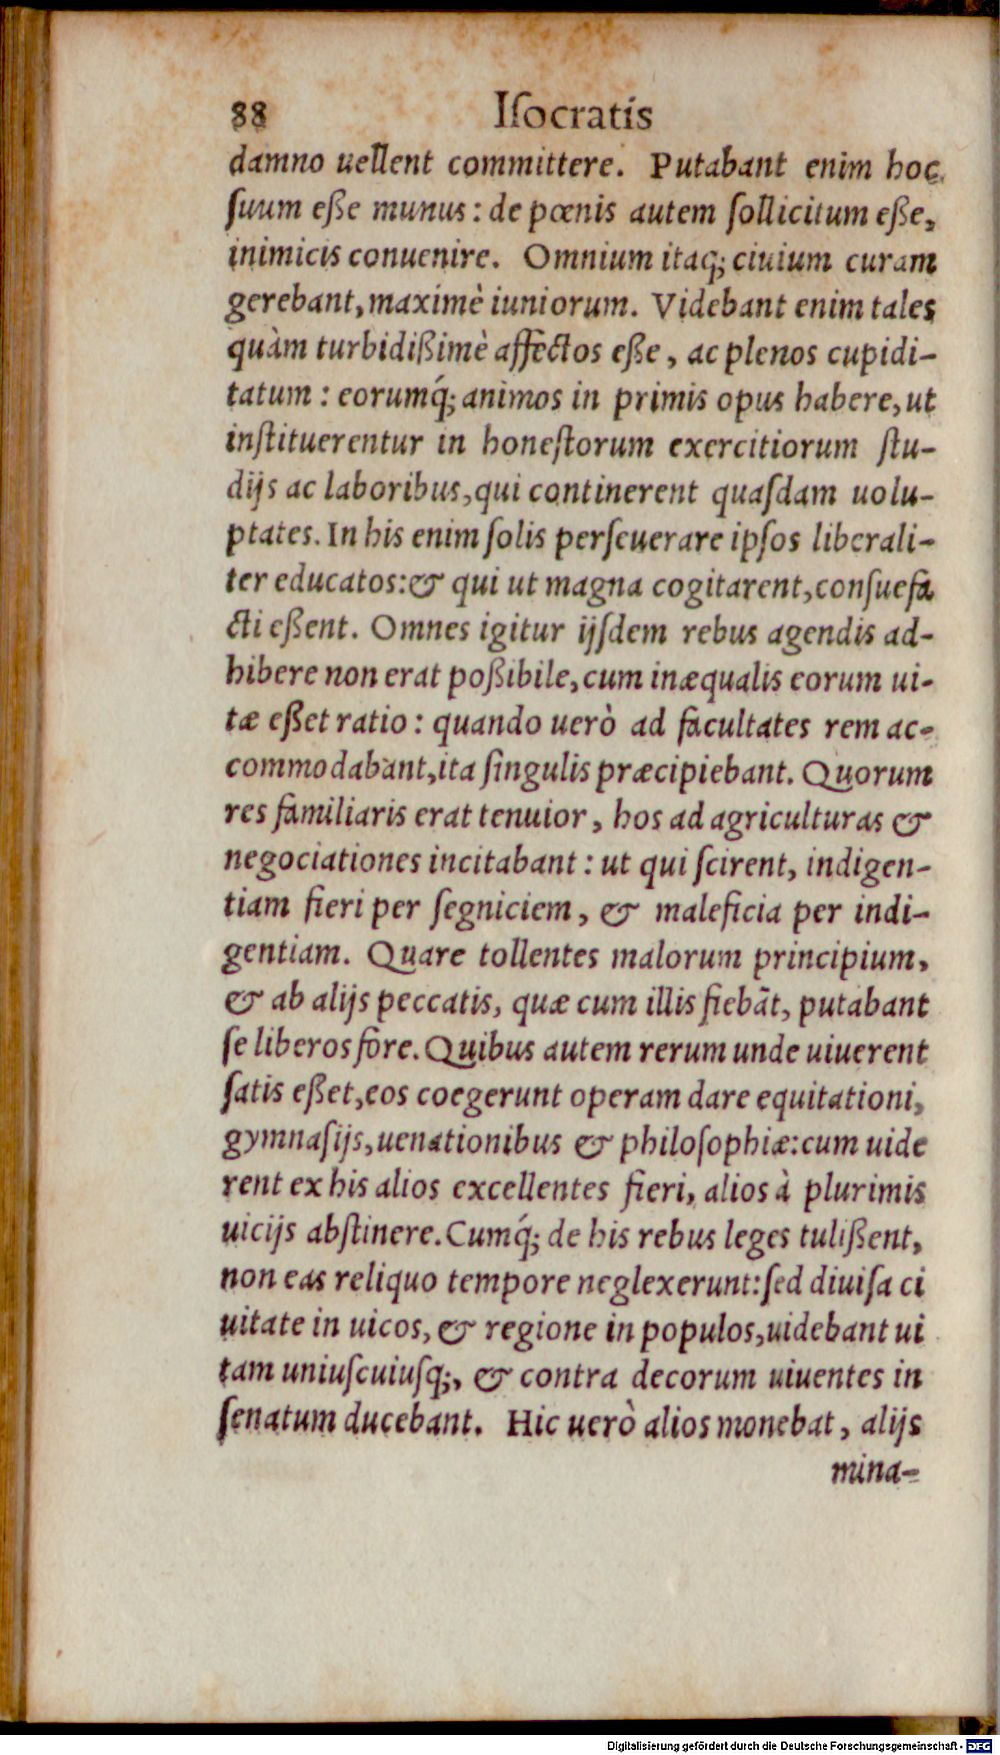 88 Iſocratis
damno uellent committere. Putabant enim hoc
ſuum eße munus: de pœnis autem ſollicitum eße,
inimicis conuenire. Omnium itaq; ciuium curam
gerebant, maximè iuniorum. Videbant enim tales
quàm turbidißimè affectos eße, ac plenos cupidi-
tatum: eorumq́; animos in primis opus habere, ut
inſtituerentur in honeſtorum exercitiorum ſtu-
dijs ac laboribus, qui continerent quaſdam uolu-
ptates. In his enim ſolis perſeuerare ipſos liberali-
ter educatos: & qui ut magna cogitarent, conſuefa
cti eßent. Omnes igitur ijſdem rebus agendis ad-
hibere non erat poßibile, cum inæqualis eorum ui-
tæ eßet ratio: quando uerò ad facultates rem ac-
commodabant, ita ſingulis præcipiebant. Quorum
res familiaris erat tenuior, hos ad agriculturas &
negociationes incitabant: ut qui ſcirent, indigen-
tiam fieri per ſegniciem, & maleficia per indi-
gentiam. Quare tollentes malorum principium,
& ab alijs peccatis, quæ cum illis fiebāt, putabant
ſe liberos fore. Quibus autem rerum unde uiuerent
ſatis eßet, eos coegerunt operam dare equitationi,
gymnaſijs, uenationibus & philoſophiæ: cum uide
rent ex his alios excellentes fieri, alios à plurimis
uicijs abſtinere. Cumq́; de his rebus leges tulißent,
non eas reliquo tempore neglexerunt: ſed diuiſa ci
uitate in uicos, & regione in populos, uidebant ui
tam uniuſcuiuſq;, & contra decorum uiuentes in
ſenatum ducebant. Hic uerò alios monebat, alijs
mina-
Digitalisierung gefördert durch die Deutsche Forschungsgemeinschaft - DFG